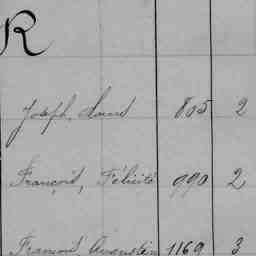 R
Joseph, 805 2
François, Félicité 990 2
François 1169 3